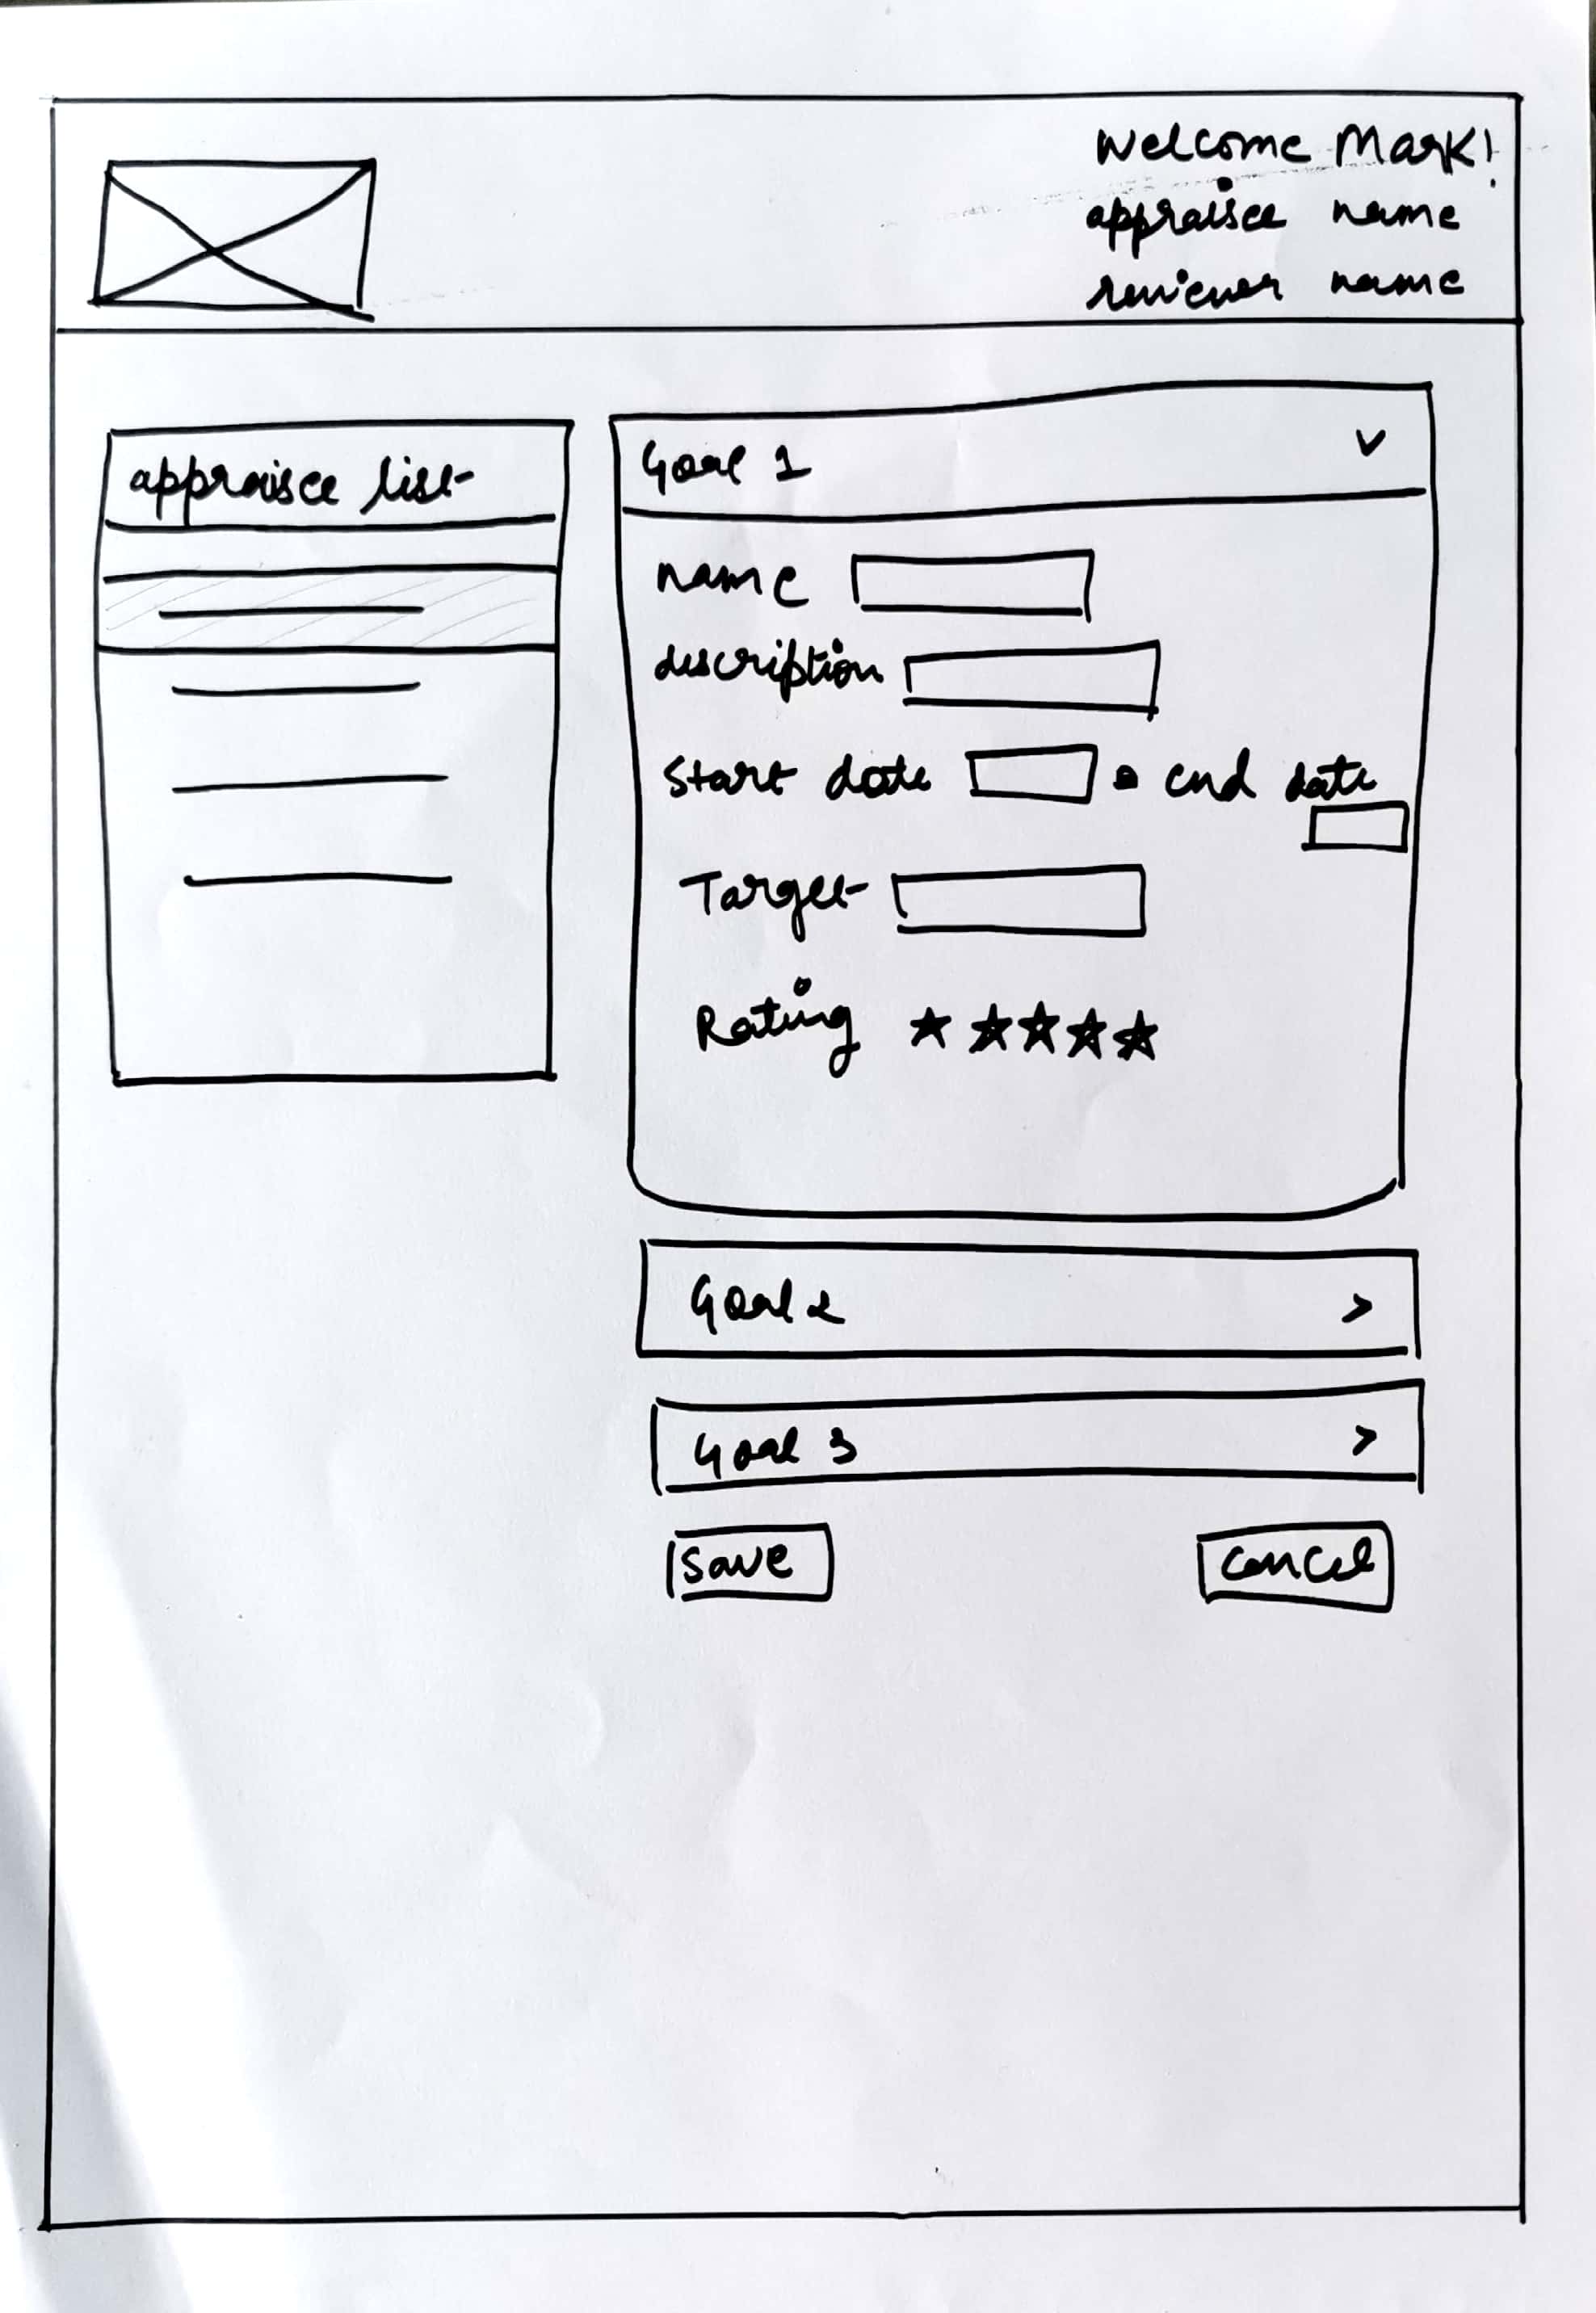 Welcome Mark!
appraisee name
reviewer name
appraisee list
Goal 1
name
description
Start date
end date
Target
Rating
Goal 2
Goal 3
Save
Cancel